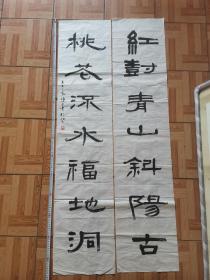 紅尌青山斜陽古
桃花深水福地洞